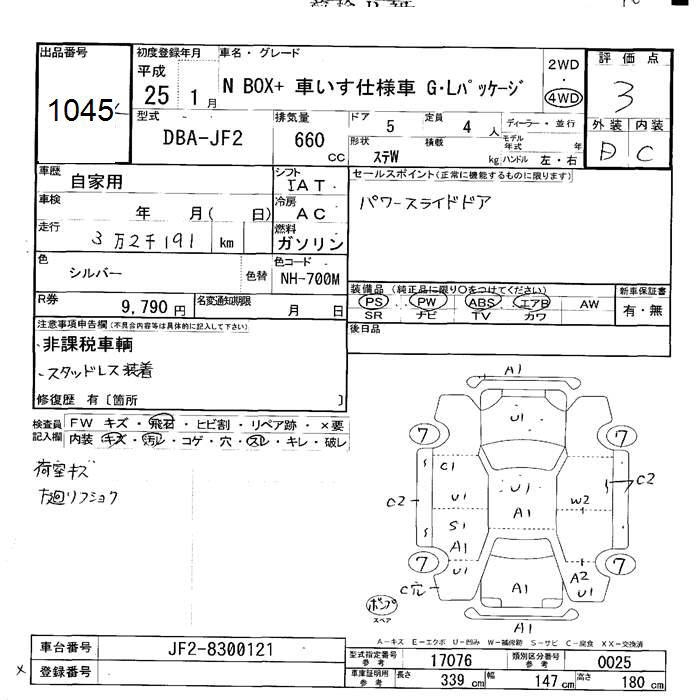 出品番号
1045
初度登録年月
平成
25 1月
車名・グレード
N BOX+ 車いす仕様車 G・Lパッケージ
2WD
・
4WD
評価点
3
外装 内装
D C
型式
DBA-JF2
排気量
660 cc
ドア 5
定員 4 人
形状 ステW
積載 kg
ディーラー・並行
モデル年式 年
ハンドル 左・右
車歴 自家用
シフト IAT
車検 年 月( 日)
冷房 AC
走行 3万2千191 km
燃料 ガソリン
色 シルバー
色替
色コード NH-700M
R券 9,790円
名変通知期限 月 日
セールスポイント(正常に機能するものに限ります)
パワースライドドア
装備品 (純正品に限り○をつけてください)
PS PW ABS エアB AW
SR ナビ TV カワ
新車保証書
有・無
後日品
注意事項申告欄(不具合内容等は具体的に記入して下さい)
・非課税車輌
・スタッドレス装着
修復歴 有〔箇所 〕
検査員記入欄
FW キズ・飛石・ヒビ割・リペア跡・×要
内装・キズ・汚レ・コゲ・穴・スレ・キレ・破レ
荷室キズ
A1
U1
7 7
C1
C2
U1
U1
W2
C2
S1
A1
A1
7 7
U1
A2
U1
C穴
A1
ポンプ
スペア
A1
A-キズ E-エクボ U-凹み W-補修跡 S-サビ C-腐食 XX-交換済
車台番号 JF2-8300121
登録番号
×
型式指定番号 参考 17076
類別区分番号 参考 0025
車庫証明用 参考
長さ 339 cm
幅 147 cm
高さ 180 cm